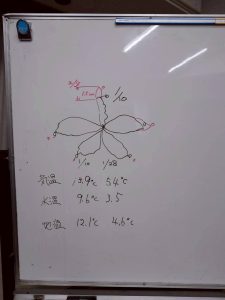 15cm
1/10
1/10 1/28
気温 13.9℃ 5.4℃
水温 9.6℃ 3.5
地温 12.1℃ 4.6℃